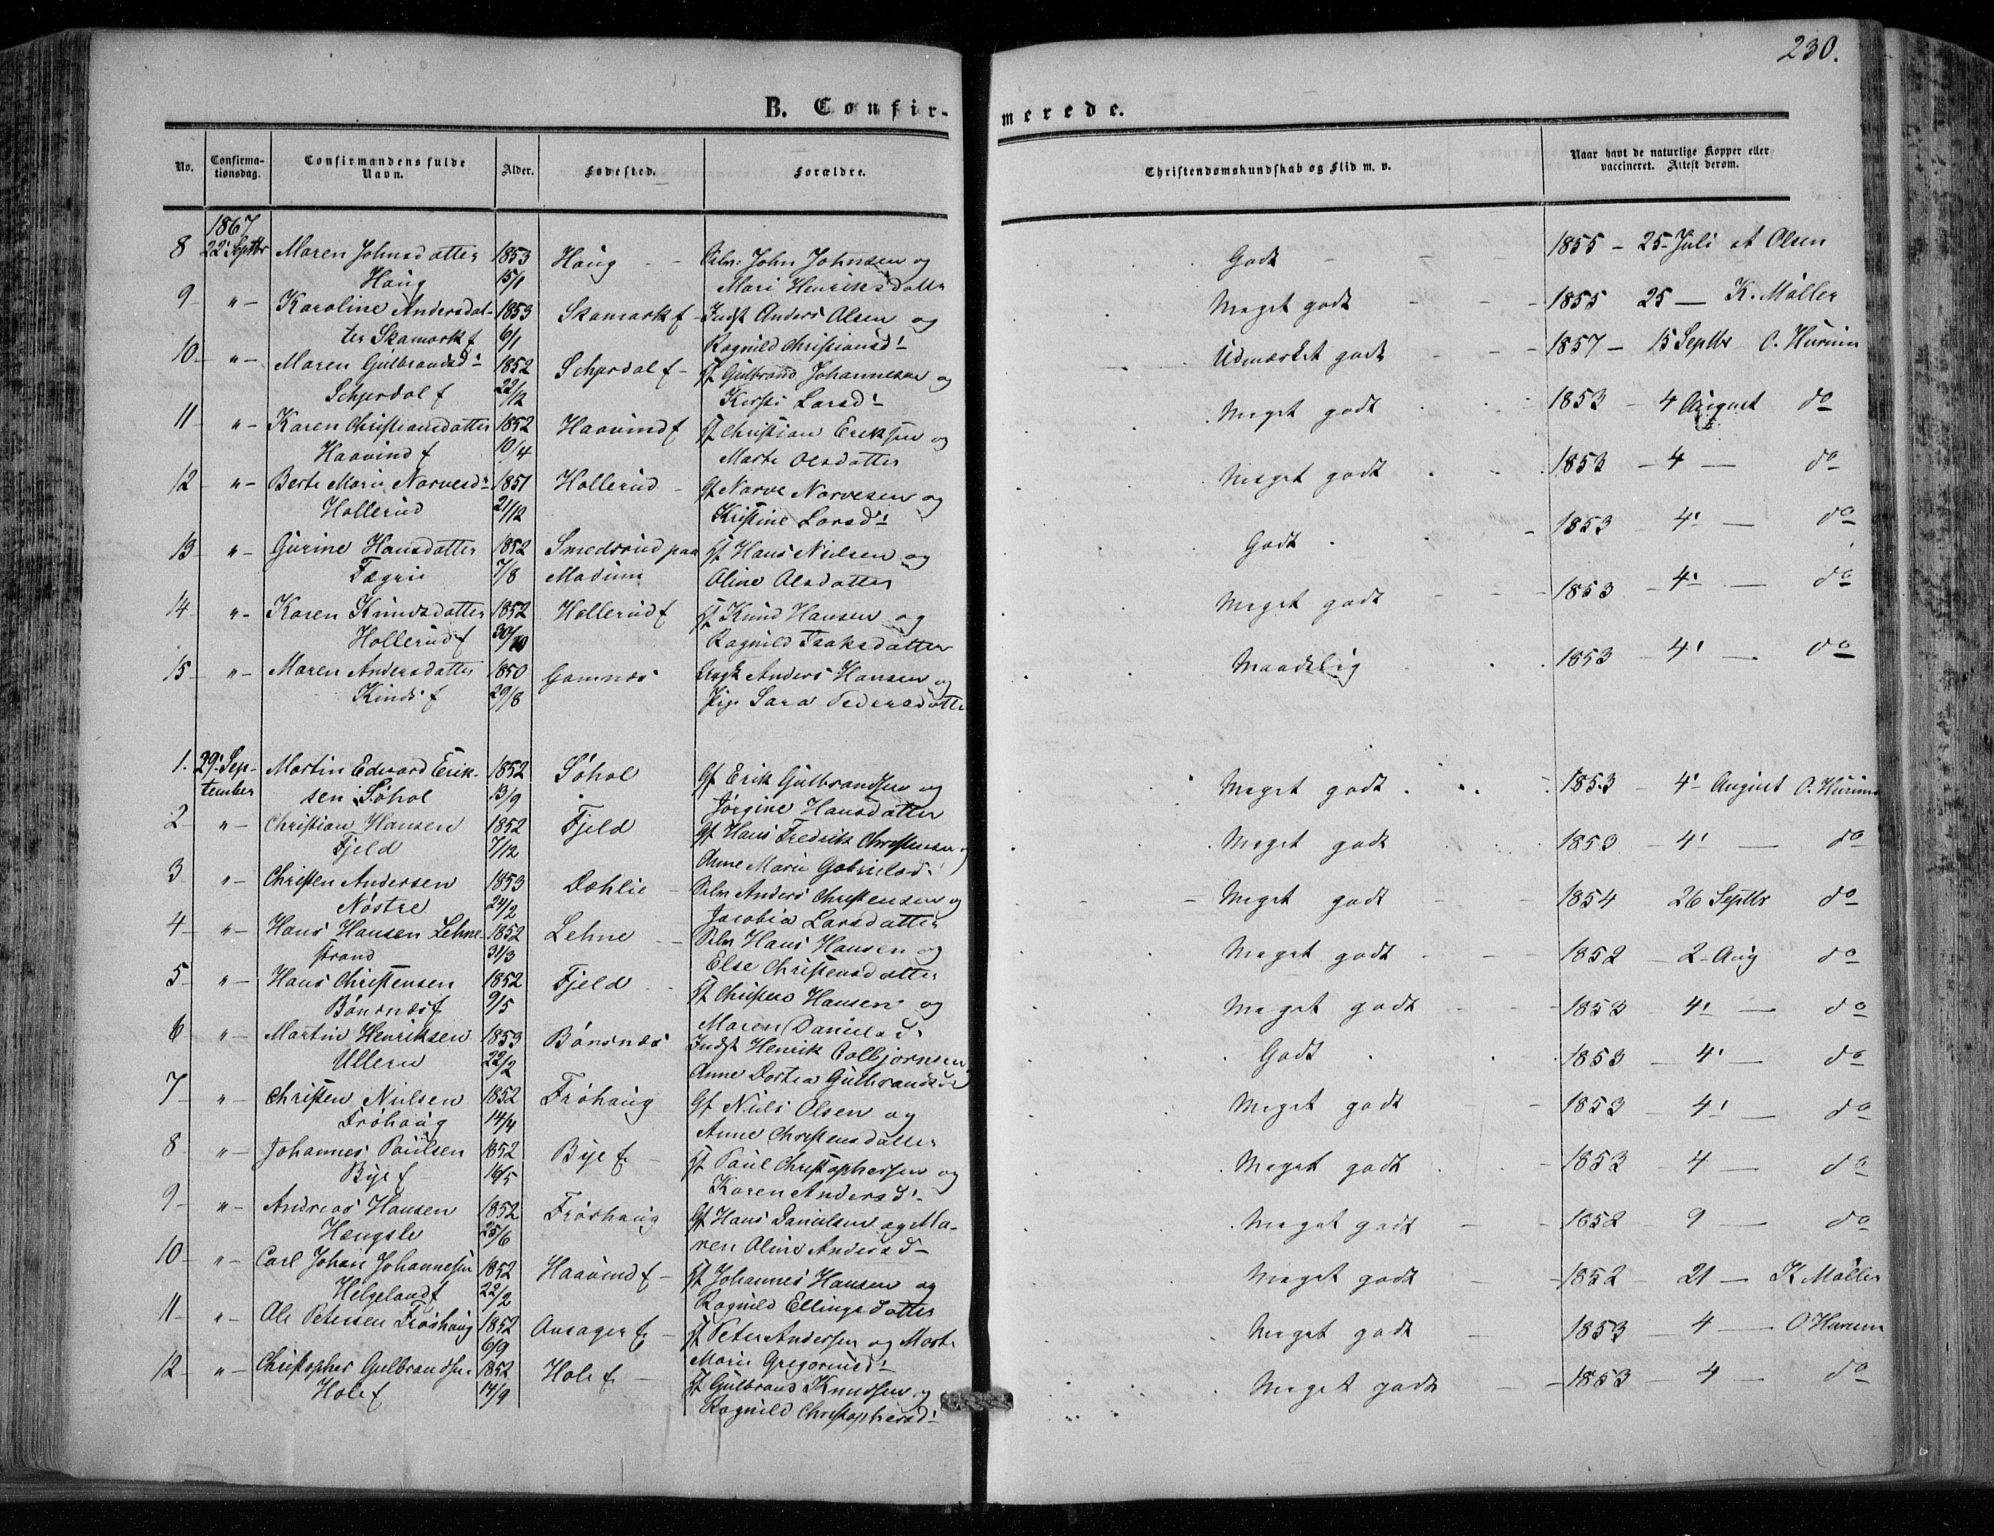 230.
B. Confir-
merede.
No.
Confirma-
tionsdag.
Confirmandens fulde
Navn.
Alder.
Fødested.
Forældre.
Christendomskundskab og Flid m. v.
Naar havt de naturlige Kopper eller
vaccineret. Attest derom.
1867
8 22' Septbr Maren Johnsdatter 1853 Haug - - John Johnsen og Godt 1855 - 25 - Juli at Olsen
Haug 15/1 Mari Henriksdatter
9 - " - Karoline Andersdat- 1853 Skamark f - Indst Anders Olsen og Meget godt 1855 25 - K. Møller
ter Skamark f 6/1 Ragnild Christiansd!
10 - " - Maren Gulbrandsd- 1852 Schjerdal f - Gulbrand Johannesen og Udmærket godt 1857 - 15 Septbr O. Hurum
Schjerdal f 22/12 Kersti Larsd!
11 - " - Karen Christiansdatter 1852 Haavind f Christian Eriksen og Meget godt 1853 - 4 August do
Haavind f 10/4 Marte Olsdatter
12 - " - Berte Marie Narvesd- 1851 Hollerud - Gf Narve Narvesen og Meget godt 1853 - 4 - do
Hollerud 21/12 Kristine Larsd!
13 - " - Gurine Hansdatter 1852 Smedsrud paa Hans Nielsen og Godt 1853 - 4' - do
Fægrie 7/8 Modum Oline Olsdatter
14 - " - Karen Knudsdatter 1852 Hollerud f Knud Hansen og Meget godt 1853 - 4' - do
Hollerud f 30/10 Ragnild Isaksdatter
15 - " - Maren Andersdatter 1850 Gomnæs Anders Hansen og Maadelig 1853 - 4' - do
f 29/8 Pige Sara Pedersdatter
1. 29' Sep- Martin Edvard Erik- 1852 Søhol Gf Erik Gulbrandsen og Meget godt 1853 - 4' August O. Hurum
tember sen Søhol 13/9 Jørgine Hansdatter
2 - " - Christian Hansen 1852 Fjeld Gf Hans Fredrik Christensen og Meget godt 1853 - 4' - do
Fjeld 7/12 Anne Marie Gabrielsd!
3 " - Christen Andersen 1853 Dæhlie - Anders Christensen og Meget godt 1854 26 Septbr do
Nøstre 24/2 Jacobia Larsdatter
4 - " - Hans Hansen Lehne- 1852 Lehne - Hans Hansen og Meget godt 1852 - 2 - Aug do
strand 31/3 Else Christensdatter
5 " - Hans Christensen 1852 Fjeld Christen Hansen og Meget godt 1853 - 4' - do
Bønsnæs f 9/5 Maren Danielsd.
6 " - Martin Henriksen 1853 Bønsnæs Indst Henrik Colbjørnsen Godt 1853 - 4' - do
Ullern 22/2 Anne Dortea Gulbrandsd-
7 - " - Christen Nielsen 1852 Frøhaug Gf Niels Olsen og Meget godt 1853 - 4' - do
Frøhaug 14/4 Anne Christensdatter
8 " - Johannes Paulsen 1852 Bye f - Paul Christophersen og Meget godt 1853 - 4 - do
Bye f 16/5 Karen Andersd!
9 - " - Andreas Hansen 1852 Frøshaug Gf Hans Danielsen og Ma- Meget godt 1852 - 9 - do
Hængsle 25/6 ren Oline Andersd-
10 - " - Carl Johan Johannesen 1852 Haavind f - Johannes Hansen og Meget godt 1852 - 21 - K Møller
Helgeland f 22/2 Ragnild Ellingsdatter
11 - " - Ole Petersen Frøshaug 1852 Onsager f - Peter Andersen og Marte Meget godt 1853 - 4 - O. Hurum
6/9 Marie Gregoriusd!
12 - " - Christopher Gulbrandsen 1852 Hole f - Gulbrand Knudsen og Meget godt 1853 - 4 - do
Hole f 14/9 Ragnild Christophersd!